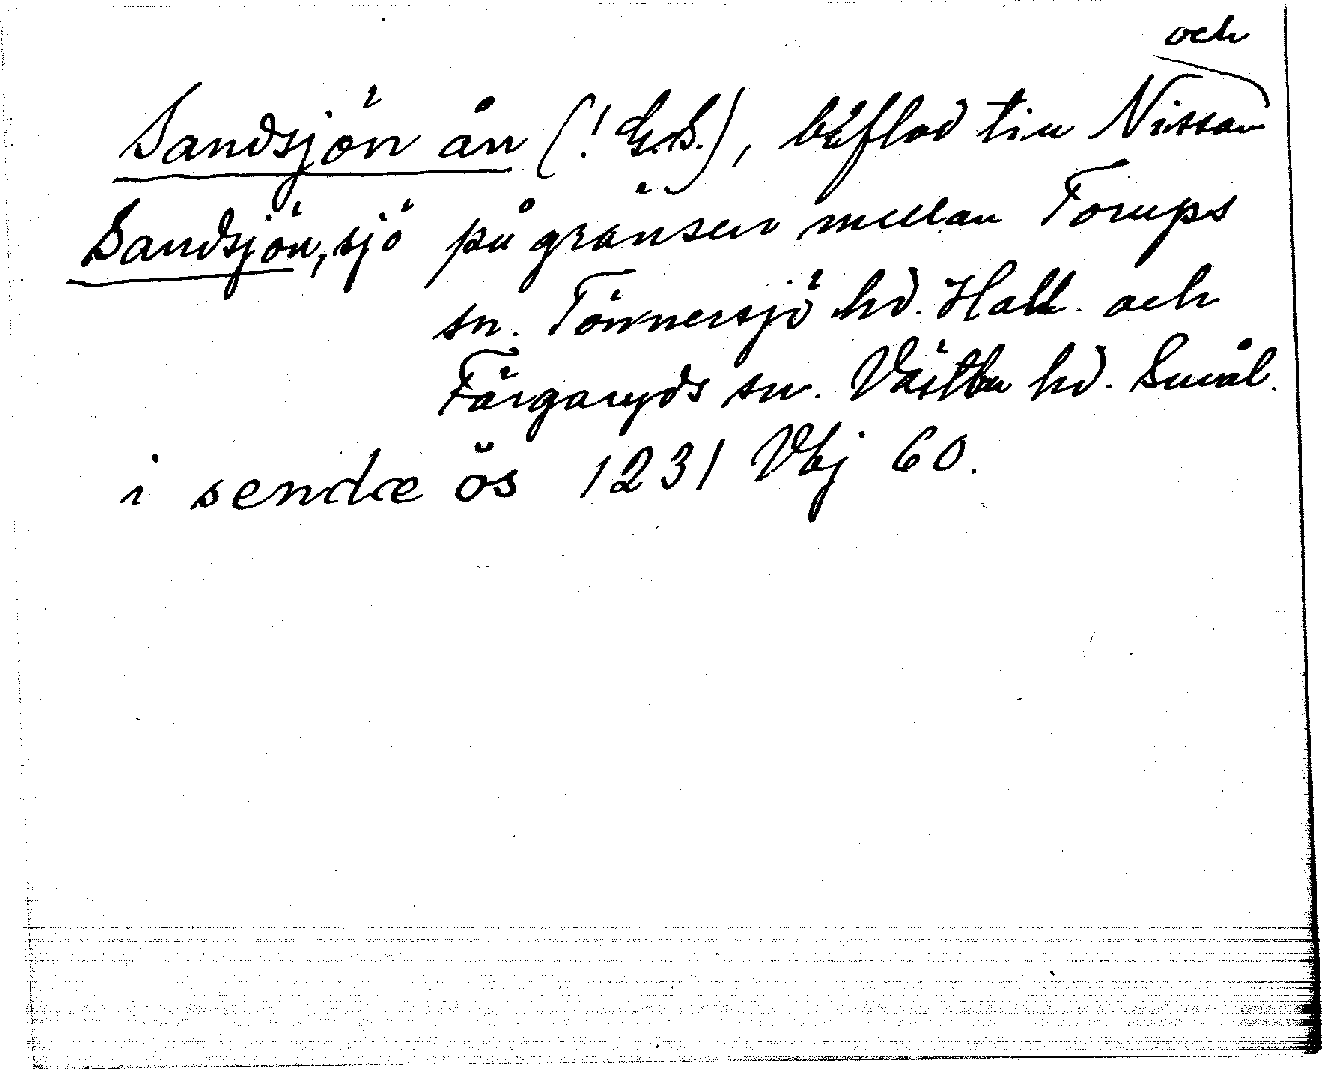 och
Sandsjön ån (! G.S.), biflod till Nissan
Sandsjön, sjö på gränsen mellan Torups
sn. Tönnersjö hd. Hall. och
Färgaryds sn. Västbo hd. Smål.
i sendœ ös 1231 Vbj 60.